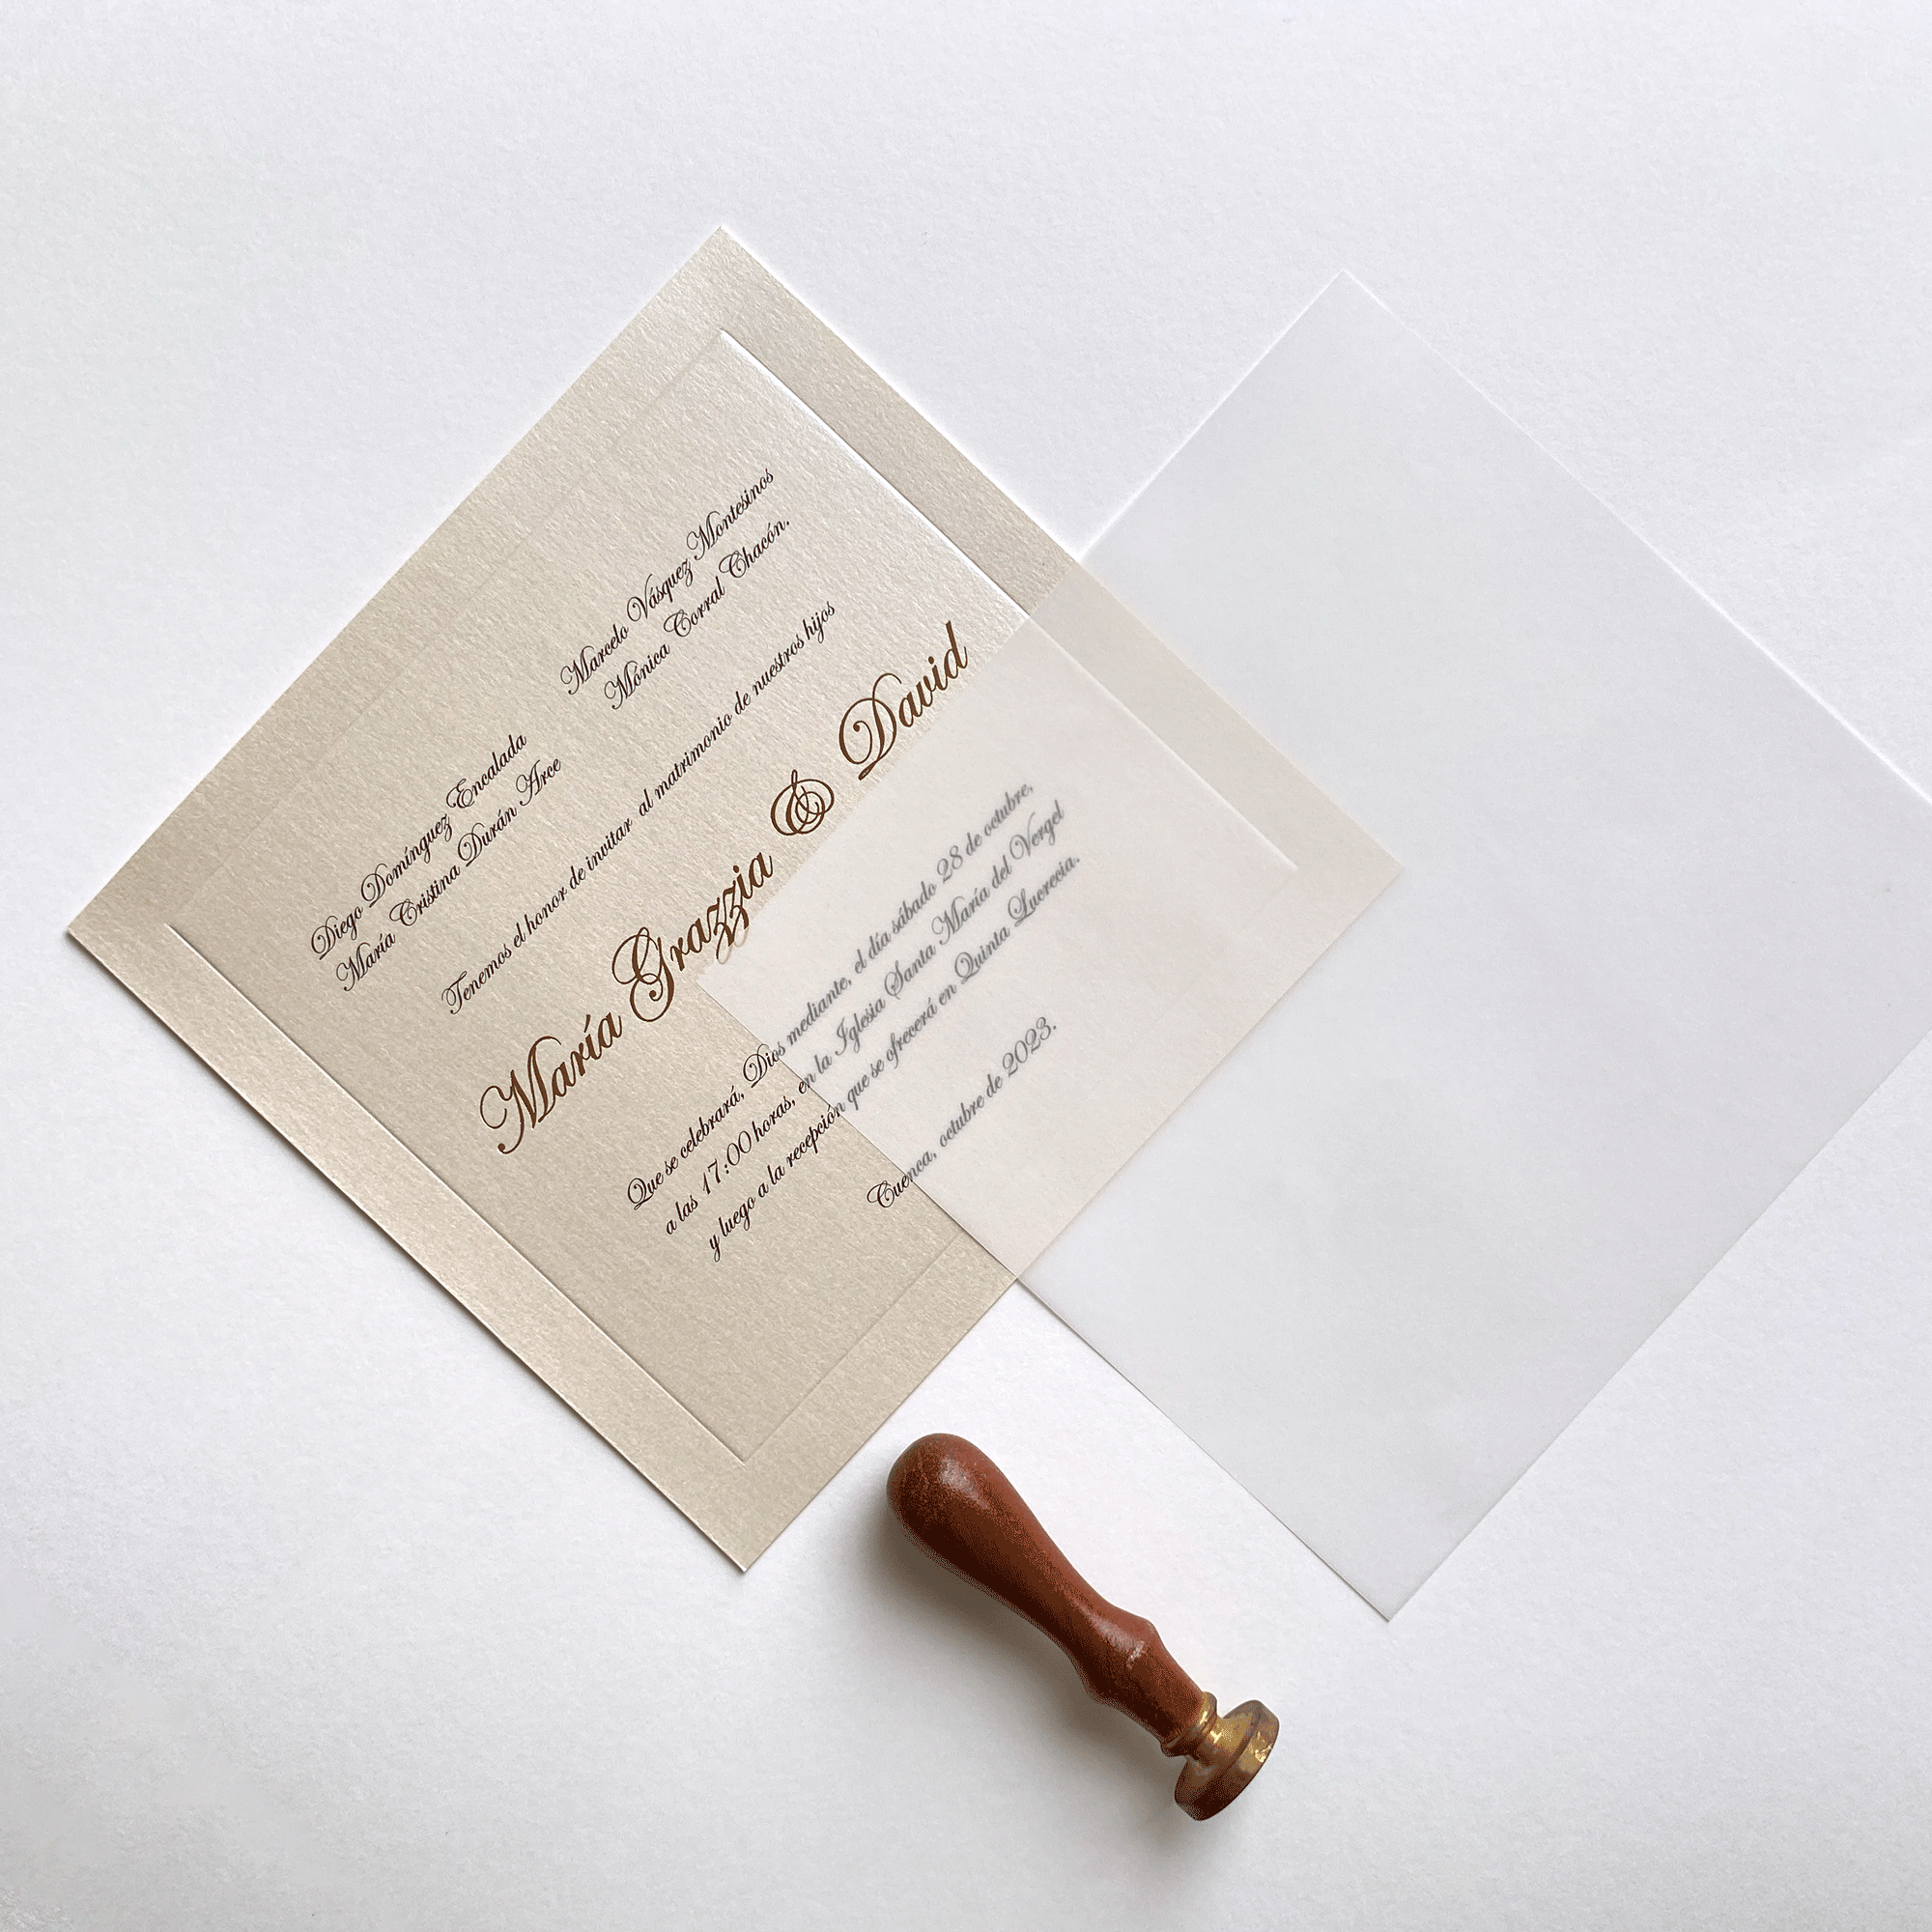 Diego Domínguez Encalada
María Cristina Durán Arce
Marcelo Vásquez Montesinos
Mónica Corral Chacón.
Tenemos el honor de invitar al matrimonio de nuestros hijos
María Grazzia & David
Que se celebrará, Dios mediante, el día sábado 28 de octubre,
a las 17:00 horas, en la Iglesia Santa María del Vergel
y luego a la recepción que se ofrecerá en Quinta Lucrecia.
Cuenca, octubre de 2023.